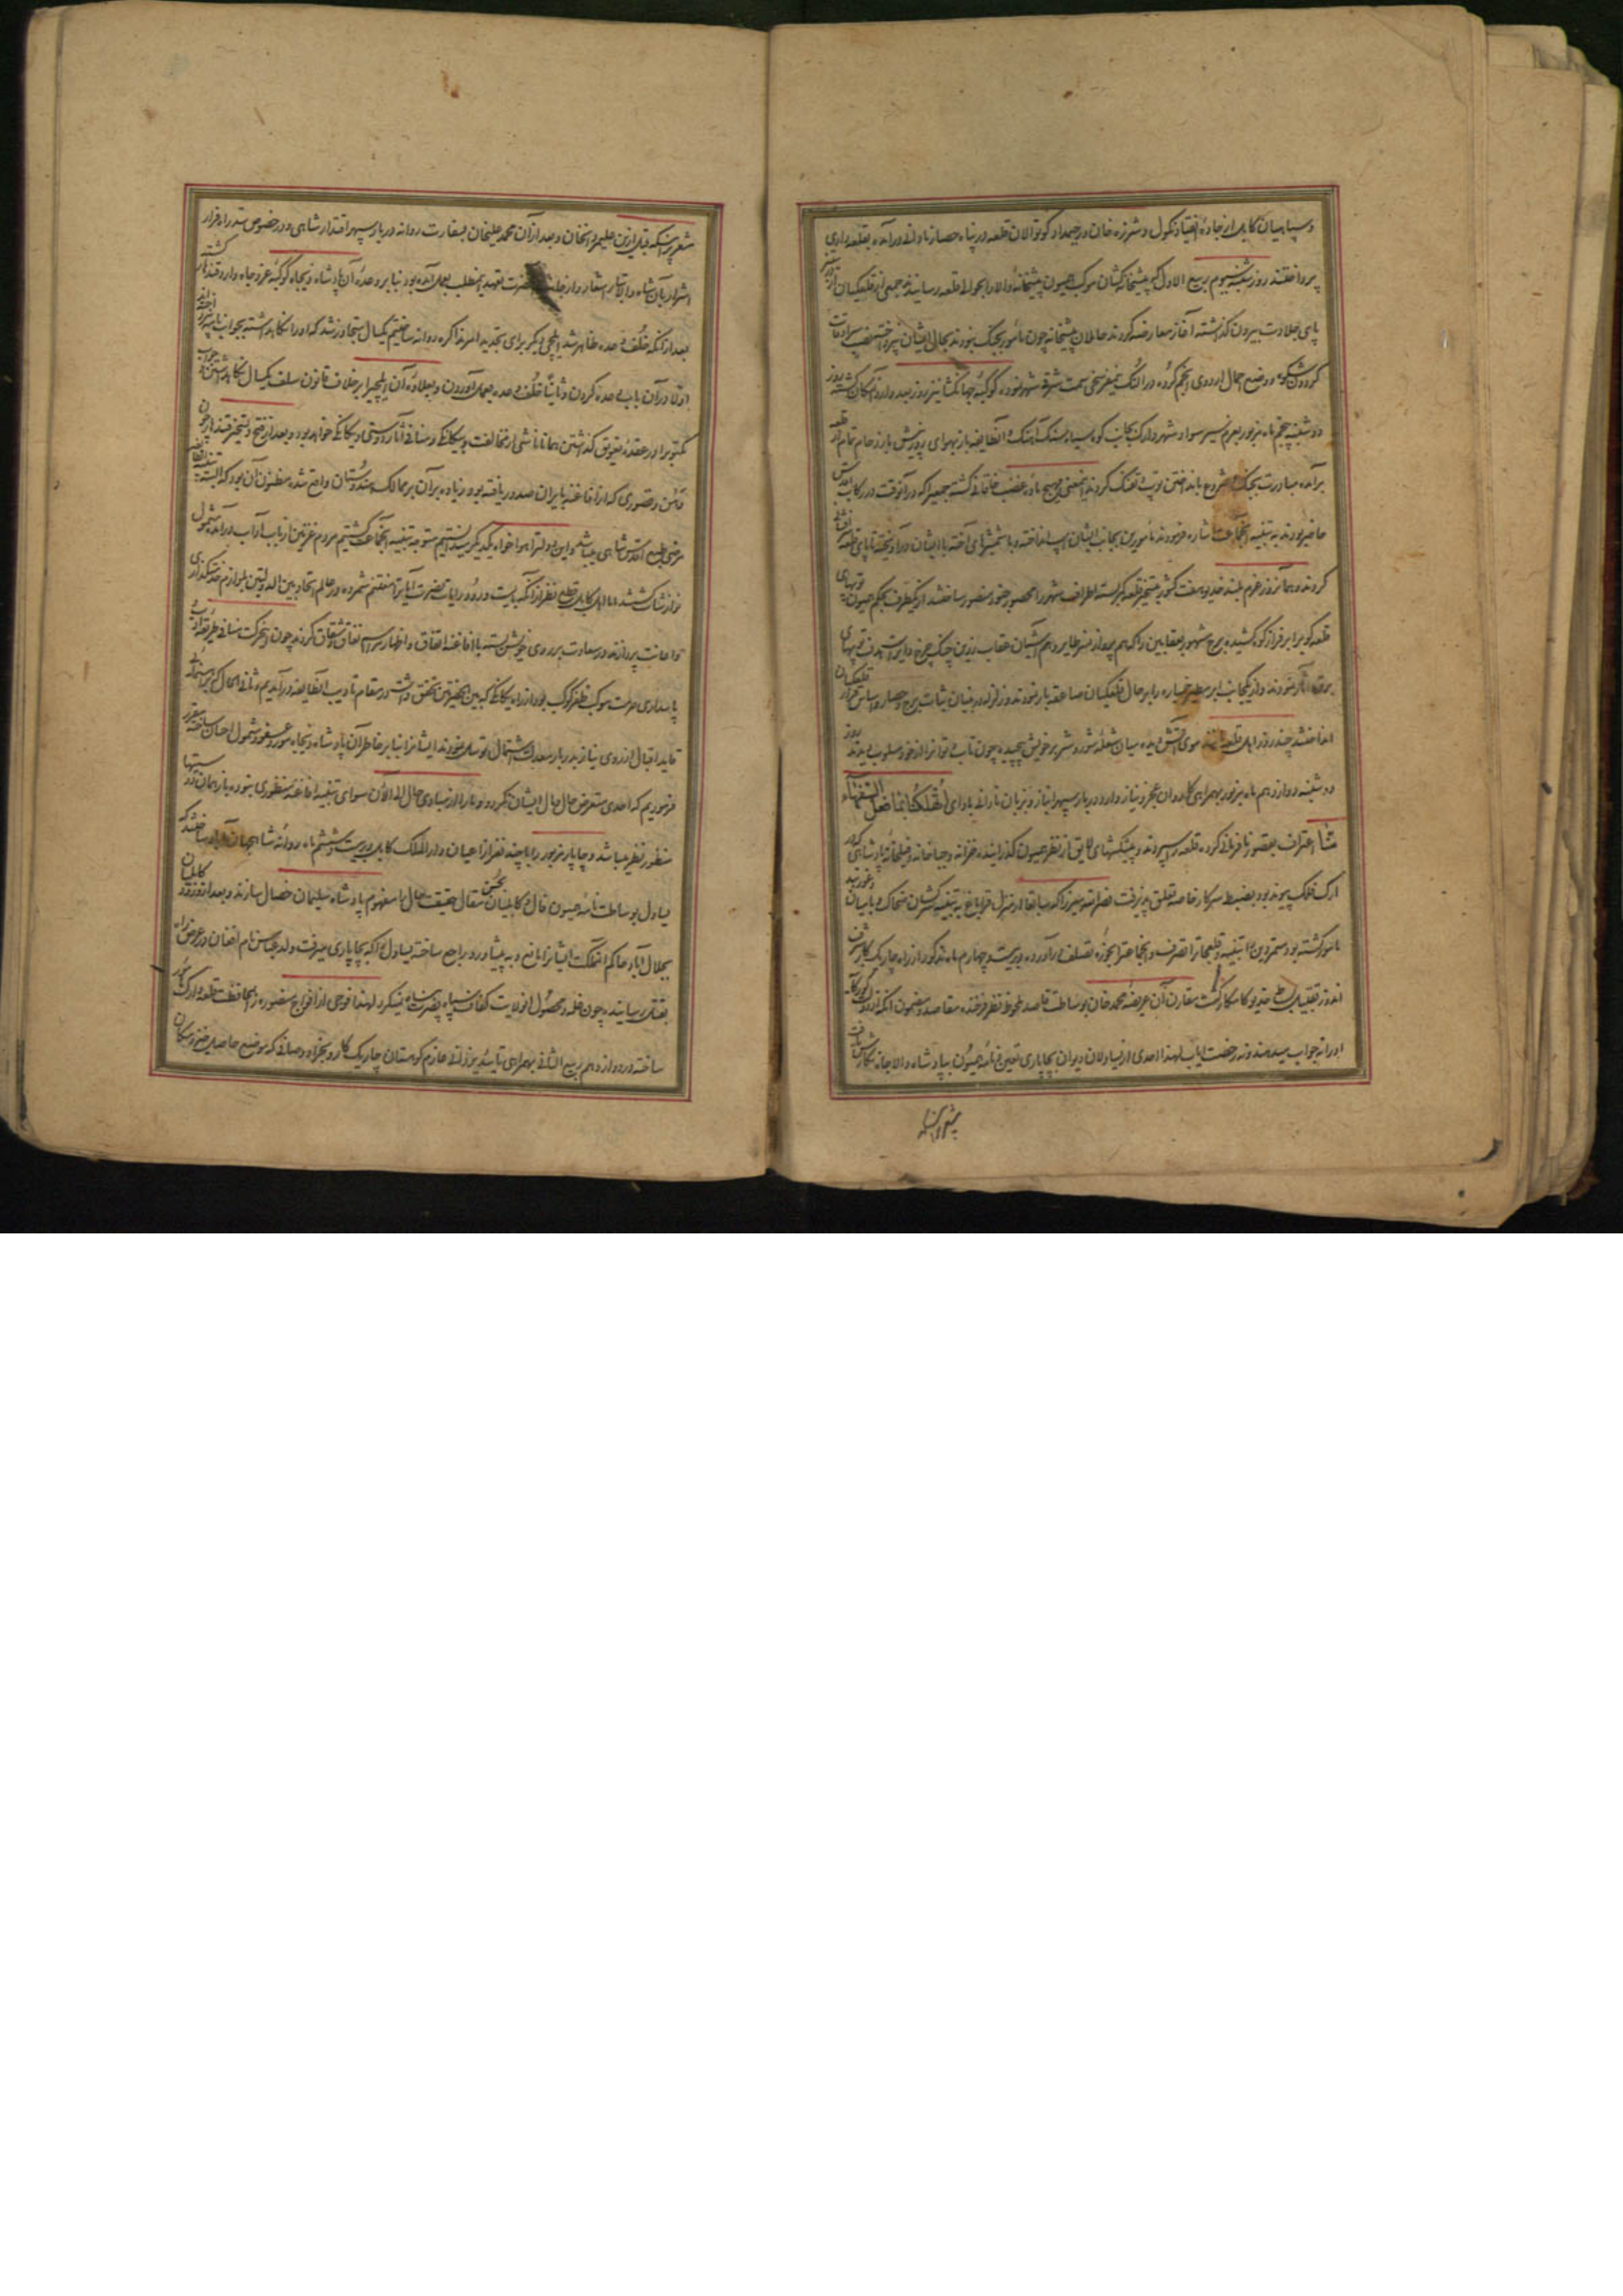 و سپاهیان کابل از جادهٔ انقیاد نکول و شرزه خان و رحیمداد کوتوالان قلعه در پناه حصار نادانی در آمده بقلعه داری
پرداختند روز شنبه سیوم ربیع الاول که پیشخانه کشان موکب همیون پیشخانهٔ والا را بحوالی قلعه رسانیدند جمعی از قلعکیان
پای جلادت بیرون گذاشته آغاز معارضه کردند حاملان پیشخانه چون مأمور بجنک نبودند بحال ایشان نپرداخته بنصب سرادقات
گردون شکوه و وضع احمال اردوی انجم گروه در النک سمت شرقی شهر نموده کوکبهٔ جهانکشا نیز روز بعد وارد آن مکان گشته روز
دوشنبه پنجم ماه مزبور بعزم سیر سواد شهر و ارک بجانب کوه سیاه سنک آهنک و آن طایفه باز بهوای پرورش بارزحام تمام از قلعه
برآمده مبادرت بجنک و شروع بانداختن توپ و تفنک کردند اینمعنی مهیج مادهٔ غضب خاقانی گشته جمعیرا که در آنوقت در رکاب اقدس
حاضر بودند به تنبیه آنجماعت اشاره فرمودند مأمورین بجانب ایشان اسب انداخته و با شمشیرهای آخته با ایشان درآویخته تا پای قلعه
کردند و همانروز عزم بلند خدیو هفت کشور بتسخیر قلعه کمر بسته اطراف شهر را محصور جنود منصور ساختند از یکطرف بحکم همیون توپهای
قلعه کوب را بر فراز کوه کشیده برج مشهور بعقابین را که هم پرواز نسر طایر و هم آشیان عقاب زرین چنک چرخ دایر است هدف توپهای
برق آثار نمودند و از یکجانب ابر مطیر خمپاره را بر حال قلعکیان صاعقه بار نمودند و زلزله در بنیان ثبات برج و حصار و اساس قرار قلعکیان
انداختند چند روز اهل قلعه مانند موی آتش دیده میان شعله شور و شر بر خویش پیچیده چون تاب و توانرا از خود مسلوب دیدند روز
دوشنبه دوازدهم ماه مزبور بهمراهی کاروان عجز و نیاز وارد دربار سپهر انباز و بزبان نادانی بادای اتهلکنا بما فعل السفهاء
منا اعتراف بقصور نافرمانی کرده قلعه را سپردند و پیشکشهای لایق از نظر همیون گذرانیده خزانه و جباخانه و فیلخانهٔ پادشاهی که در
ارک فلک پیوند بود بضبط سرکار خاصه تعلق پذیرفت نصرالله میرزا که سابقا از منزل قراباغ به تنبیه سرکشان ضحاک و بامیان و غوربند
مأمور گشته بود متمردین را تنبیه و قلعجات را تصرف و آنجا عترا بحوزه تصلف در آورده در بیست و چهارم ماه مذکور از راه چاریک کار شرف
اندوز تقبیل بساط خدیو کامکار گشت مقارن آن عریضهٔ محمد خان بوساطت قاصد ملحوظ نظر فرخنده مقاصد و مضمون آنکه از دولت گورکانی
اورا نه جواب میدهند و نه رخصت ایاب لهذا احدی از یساولان دیوان بچاپاری تعیین و نامهٔ همیون بپادشاه والاجاه نگارش یافت
مشعر بر اینکه
مشعر بر اینکه قبل ازین علیمردانخان و بعد از آن محمد علیخان بسفارت روانه دربار سپهر اقتدار شاهی و در خصوص سد راه فرار
اشرار بآن شاه والاتبار اشعار و از جانب آنحضرت تعهد اینمطلب بعمل آمده بود بنا بر وعدهٔ آن پادشاه ذیجاه کوکبهٔ عز و جاه وارد قندهار گشته
بعد از آنکه خلف وعده ظاهر شد ایلچی دیگر برای تجدید المر مذاکره روانه ساختیم یکسال متجاوز شد که اورا نگاهداشته بجواب نامه نپرداخته اند
اولا در آن باب وعده کردن و ثانیا خلف وعده بعمل آوردن و بعلاوهٔ آن ایلچیرا بر خلاف قانون سلف یکسال نگاهداشتن و جواب
مکتوبرا در عقدهٔ تعویق گذاشتن همانا ناشی از مخالفت و بیگانگی و منافی آثار دوستی و یکانگی خواهد بود و بعد از فتح و تسخیر قندهار چون
فتن و قصوری که از افاغنه بایران صدور یافته بود و زیاده بر آن بر ممالک هندوستان واقع شده مظنون آن بود که البته تنبیه آنطایفه
مرضی طبع اقدس شاهی میباشد و این دولترا هواخواه یکدیگر میدانستیم متوجه تنبیه آنجماعت گشتیم مردم غزنین از باب آداب در آمده مشمول
نوازشات گشتند اما اهل کابل قطع نظر از آنکه بایست ورود رایات نصرت آیاترا مغتنم شمرده و در عالم اتحاد بین الدولتین بلوازم خدمتگذاری
و اعانت پردازند در سعادت بر روی خویش بسته با افاغنه اتفاق و اظهار مراسم نفاق و شقاق کردند چون این حرکت منافی طریقهٔ ادب
پاسداری حرمت موکب ظفر کوکب بود از راه یکانگی که بین الحضرتین تحقق داشت در مقام تأدیب آنطایفه در آمدیم و ثانی الحال که برهنمائی
قاید اقبال از روی نیاز بدربار معدلت اشتمال توسل نمودند ایشانرا بنابر خاطر آن پادشاه ذیجاه مورد عفو و شمول احسان ساخته مقرر
فرمودیم که احدی متعرض حال و مال ایشان نگردد و مارا از مبادی حال الی الآن سوای تنبیه افاغنه منظوری نبوده باز همان در
منظور نظر میباشد و چاپار مزبور را با چند نفر از اعیان دارالملک کابل در بیست و ششم ماه روانهٔ شاهجهان آباد ساختند که
یساول بوساطت نامه همیون فال و کابلیان بحسن مقال حقیقت حال را مفهوم پادشاه سلیمان خصال سازند و بعد از ورود کابلیان
بجلال آباد حاکم آنملکت ایشانرا مانع و به پیشاور راجع ساخته یساول را که بچاپاری میرفت ولد عباس نام افغان در عرض راه
بقتل رسانیده چون غله و محصول آنولایت کفاف سپاه نصرت پناه نمیکرد لهذا فوجی از افواج منصوره را بمحافظت قلعه و ارک مأمور
ساخته در دوازدهم ربیع الثانی بهمراهی تأیید یزدانی عازم کوهستان چاریک کار و نجراو و صافی که موضع حاصل خیز و مکان